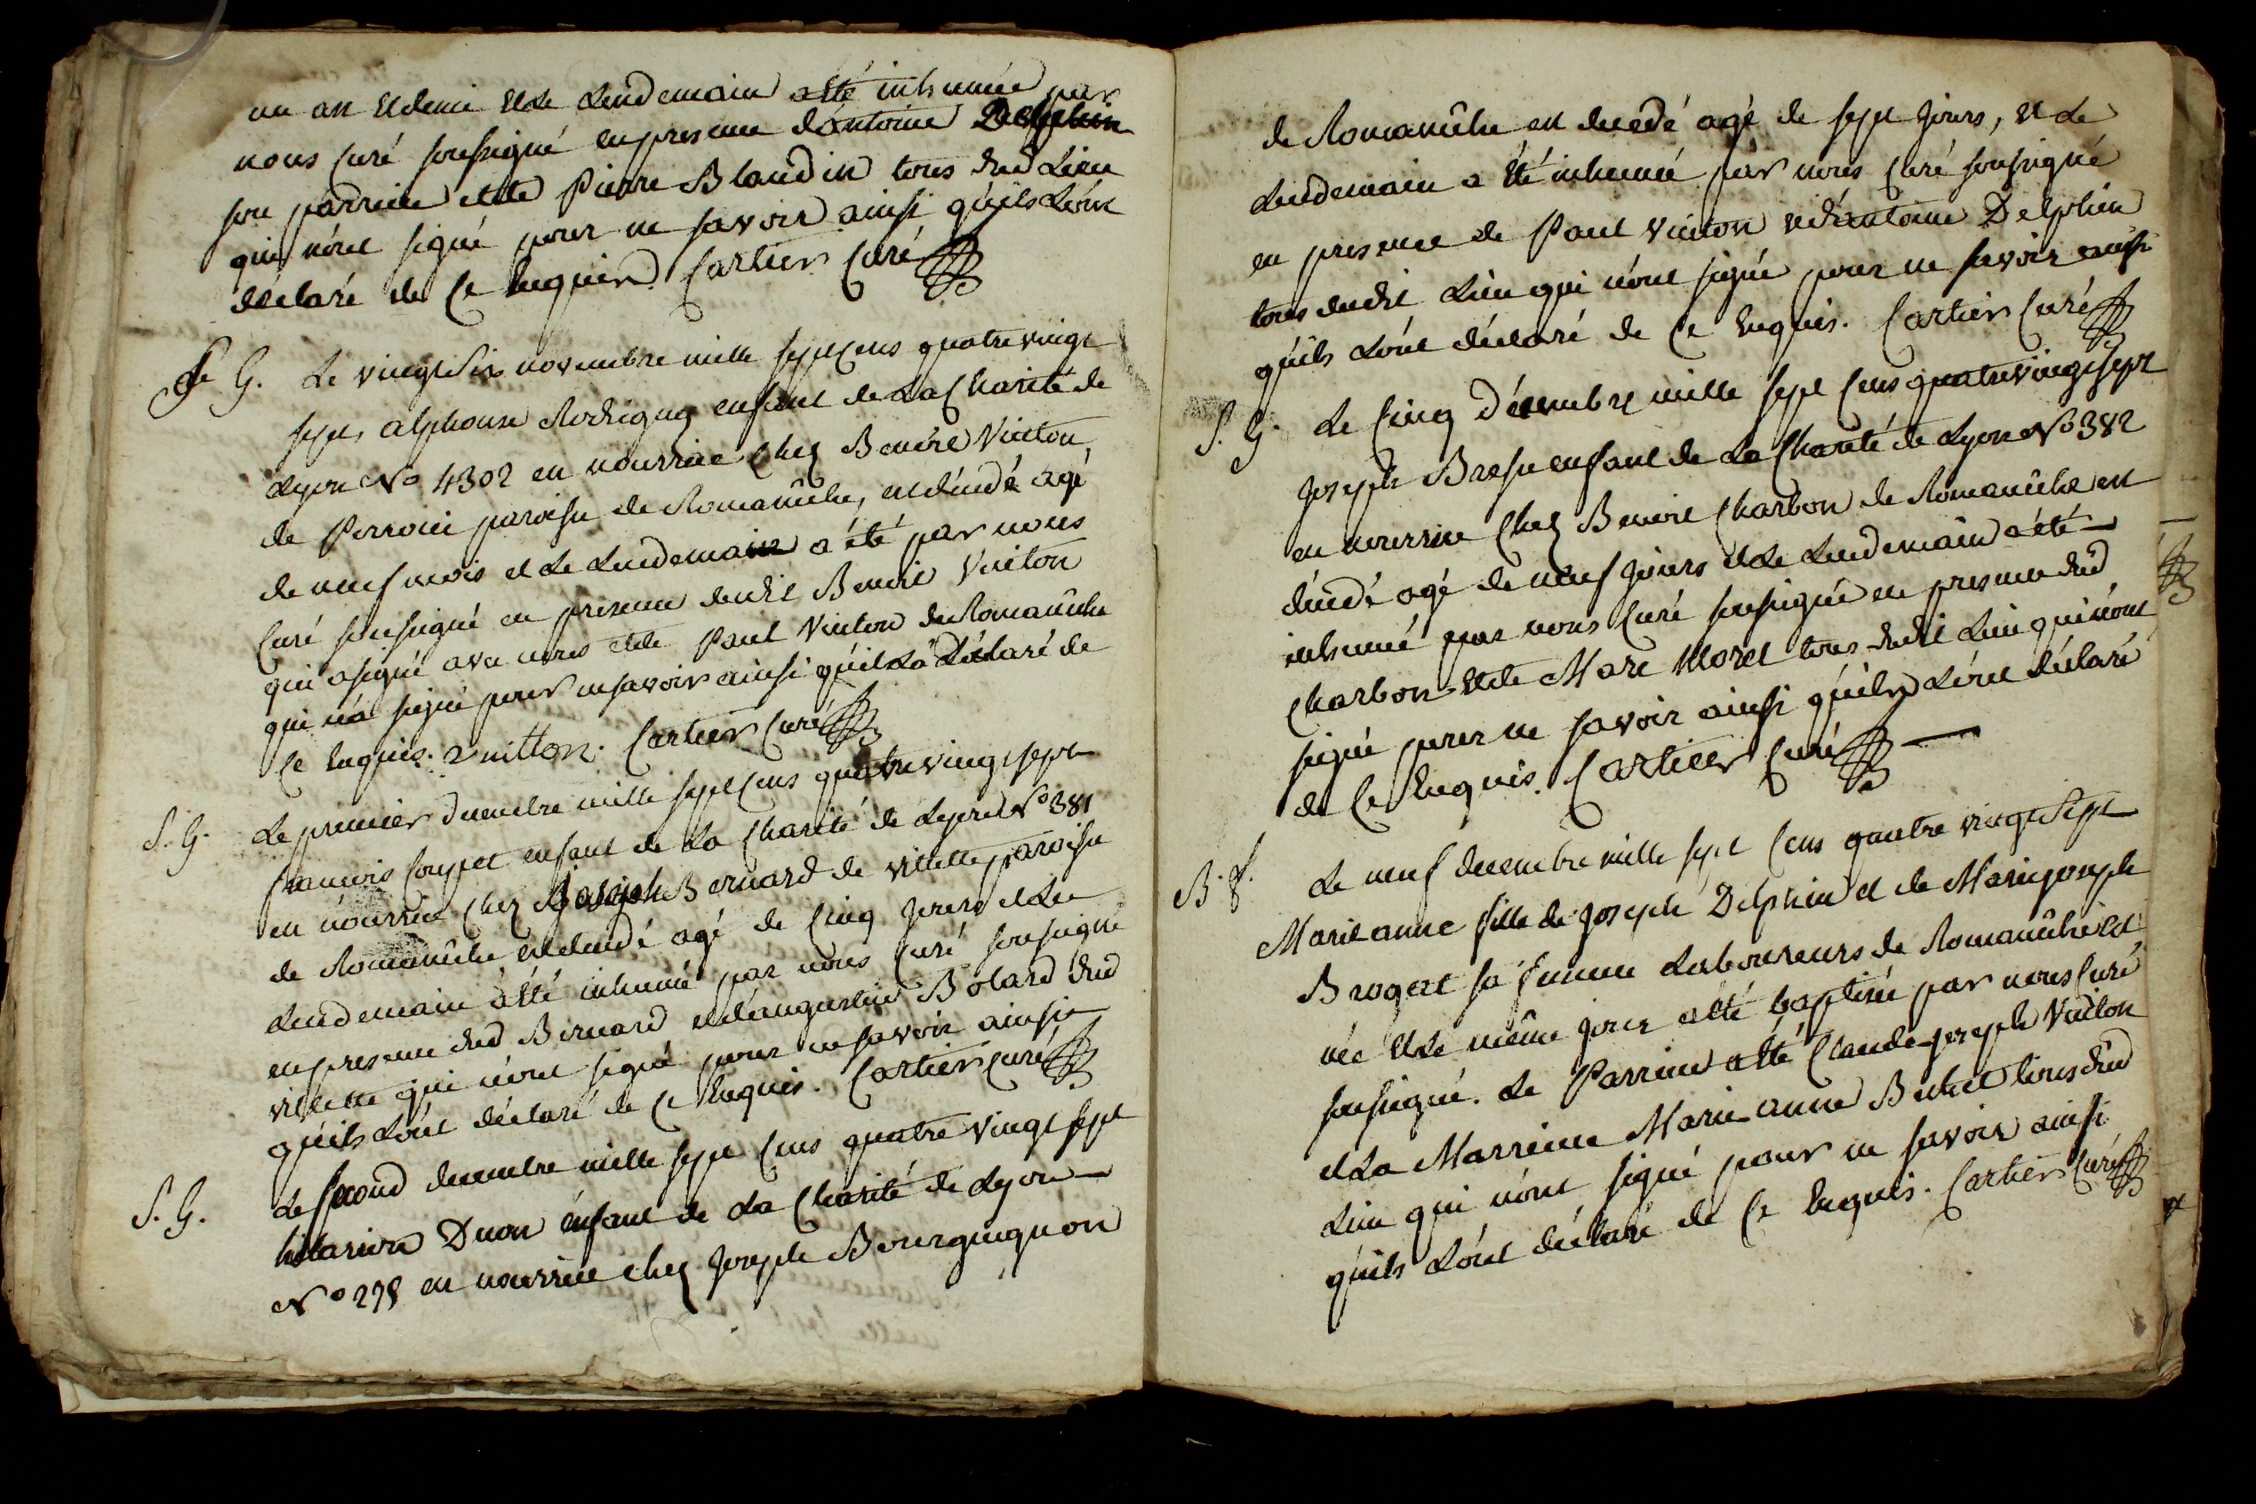 un an et demi et Le Lendemain a été inhumée par
nous Curé soussigné en presence d'antoine Delphin
son parrein et de Pierre Blandin tous dud Lieu
qui n'ont signé pour ne savoir ainsi qu'ils L'ont
déclaré de Ce Enquier. Cartier Curé
S. G. Le vingt six novembre mille sept Cens quatre vingt
sept, alphonse Rodriguez enfant de La Charité de
Lyon No 4302 en nourrice Chez Benoit Vuiton
de Perroui paroisse de Romanêche, est décédé agé
de neuf mois et Le Lendemain a été par nous
Curé soussigné en presence dudit Benoit Vuiton
qui a signé avec nous et de Paul Vuiton de Romanêche
qui n'a signé pour ne savoir ainsi qu'il L'a Déclaré de
Ce Enquis. Vuitton. Cartier Curé
S. G. Le premier decembre mille sept Cens quatre vingt sept
francois Coupet enfant de La Charité de Lyon No 381
en nourrice Chez Joseph Bernard de villette paroisse
de Romanêche est decedé agé de Cinq jours et Le
Lendemain a été inhumé par nous Curé soussigné
en presence dud Bernard et d'augustin Bolard dud
villette qui n'ont signé pour ne savoir ainsi
qu'ils L'ont déclaré de Ce Enquis. Cartier Curé
S. G. Le second decembre mille sept Cens quatre vingt sept
hilarion Duon enfant de La Charité de Lyon
No 278 en nourrice chez Joseph Bourguignon
de Romanêche est decedé agé de sept jours, et Le
Lendemain a été inhumé par nous Curé soussigné
en presence de Paul Vuiton et d'antoine Delphin
tous dudit Lieu qui n'ont signé pour ne savoir ainsi
qu'ils L'ont déclaré de Ce Enquis. Cartier Curé
S. G. Le Cinq Décembre mille sept Cens quatre vingt sept
Joseph Bresse enfant de La Charité de Lyon No 382
en nourrice Chez Benoit Charbon de Romanêche est
décédé agé de neuf jours et Le Lendemain a été
inhumé par nous Curé soussigné en presence dud
Charbon et de Marc Morel tous dudit Lieu qui n'ont
signé pour ne savoir ainsi qu'ils L'ont déclaré
de Ce Enquis. Cartier Curé
B. f. Le neuf decembre mille sept Cens quatre vingt sept
Marie anne fille de Joseph Delphin et de Marie joseph
Broget sa femme Laboureurs de Romanêche est
née et Le même jour a été baptisé par nous Curé
soussigné. Le Parrein a été Claude joseph Vuiton
et La Marreine Marie anne Bechet tous dud
Lieu qui n'ont signé pour ne savoir ainsi
qu'ils L'ont déclaré de Ce Enquis. Cartier Curé